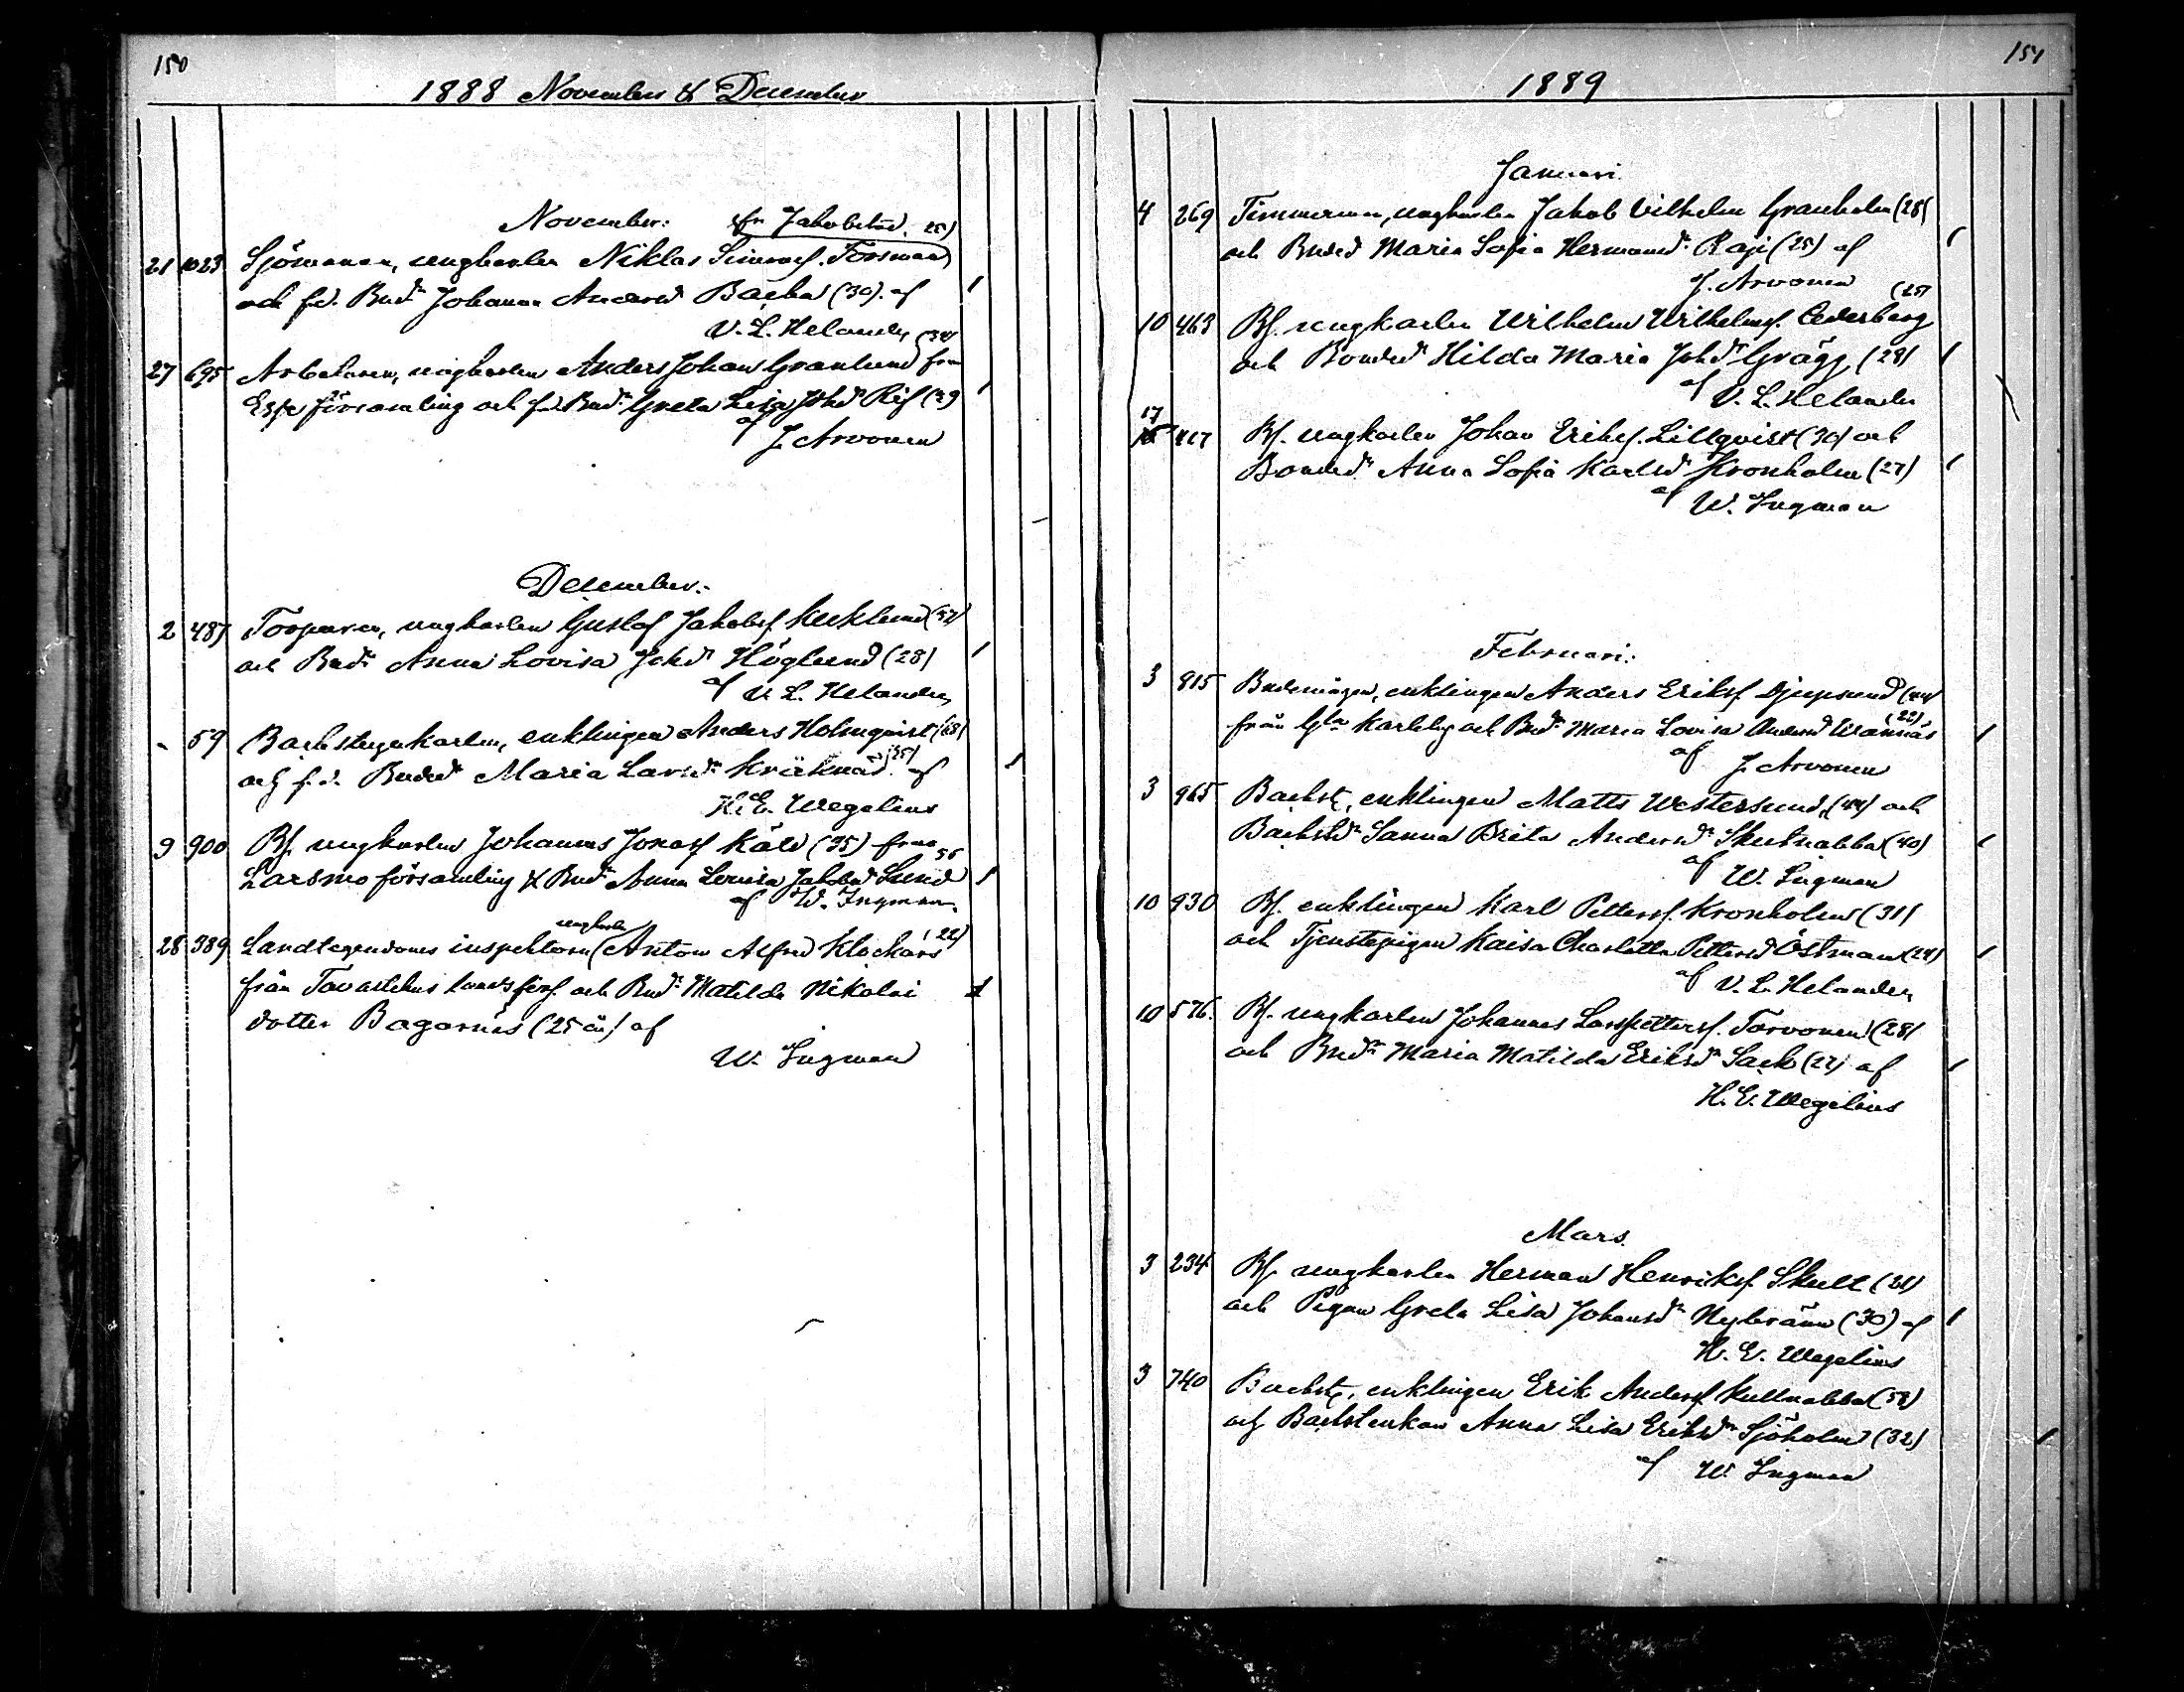 150
1888 November & December
November:
fr. Jakobstad. 25)
21 1023 Sjömannen, ungkarlen Niklas Simonss. Forsman
och f.d. Bndr Johanna Andersdr Backa (30). af
V. L. Helander
(34)
27 695 Arbetaren, ungkarlen Anders Johan Granlund från
Esse församling och f.d. Bndr Greta Lisa Johdr Rif (29
af J. Arvonen
December:
2 487 Torparen, ungkarlen Gustaf Jakobss.
och Bndr Anna Lovisa Johdr Höglund (28)
af V. L. Helander
- 59 Backstugukarlen, enklingen Anders Holmqvist (68)
och f.d. Bndedr Maria Larsdr Kräknäs (35) af
H. E. Wegelius
9 900 Bs. ungkarlen Johannes Jonass. Käld (35) från
Larsmo församling & Bndr Anna Lovisa Jakobsdr Lund
af W. Ingman.
ungkarlen
28 389 Landtegendoms inspektorn (Anton Alfred Klockars (22)
från Tavastehus lands förs. och Bndr Matilda Nikolai
dotter Bagarnäs (25 år) af
W. Ingman
151
1889
Januari.
4 269 Timmerman, ungkarlen Jakob Vilhelm Granholm (28)
och Bndedr Maria Sofia Hermansdr Raji (25) af
J. Arvonen
(25)
10 463 Bs. ungkarlen Wilhelm Wilhelmss. Cederberg
och Bondedr Hilda Maria Johdr Grägg (28)
af V. L. Helander
17
417 Bs. ungkarlen Johan Erikss. Lillqvist (30) och
Bondedr Anna Sofia Karlsdr Kronholm (27)
af W. Ingman
Februari:
3 815 Bndemågen, enklingen Anders Erikss. Djupsund (44)
från Gla Karleby och Bndr Maria Lovisa Andersdr (22)
af J. Arvonen
3 965 Backst., enklingen Matts Westersund, (44) och
Backstdr Sanna Brita Andersdr Skutnabba (40)
af W. Ingman
10 930 Bs. enklingen Karl Petterss. Kronholm (31)
och Tjenstepigan Kaisa Charlotta Pettersdr Östman (24)
af V. L. Helander
10 576. Bs. ungkarlen Johannes Larspetterss. Torvonen (28)
och Bndr Maria Matilda Eriksdr Sack (22) af
H. E. Wegelius
Mars.
3 234 Bs. ungkarlen Herman Henrikss. Skult (21)
och Pigan Greta Lisa Johansdr Nybränn (30) af
H. E. Wegelius
3 740 Backst., enklingen Erik Anderss. Kullnabba (58)
och Backstenkan Anna Lisa Eriksdr Sjöholm (32)
af W. Ingman